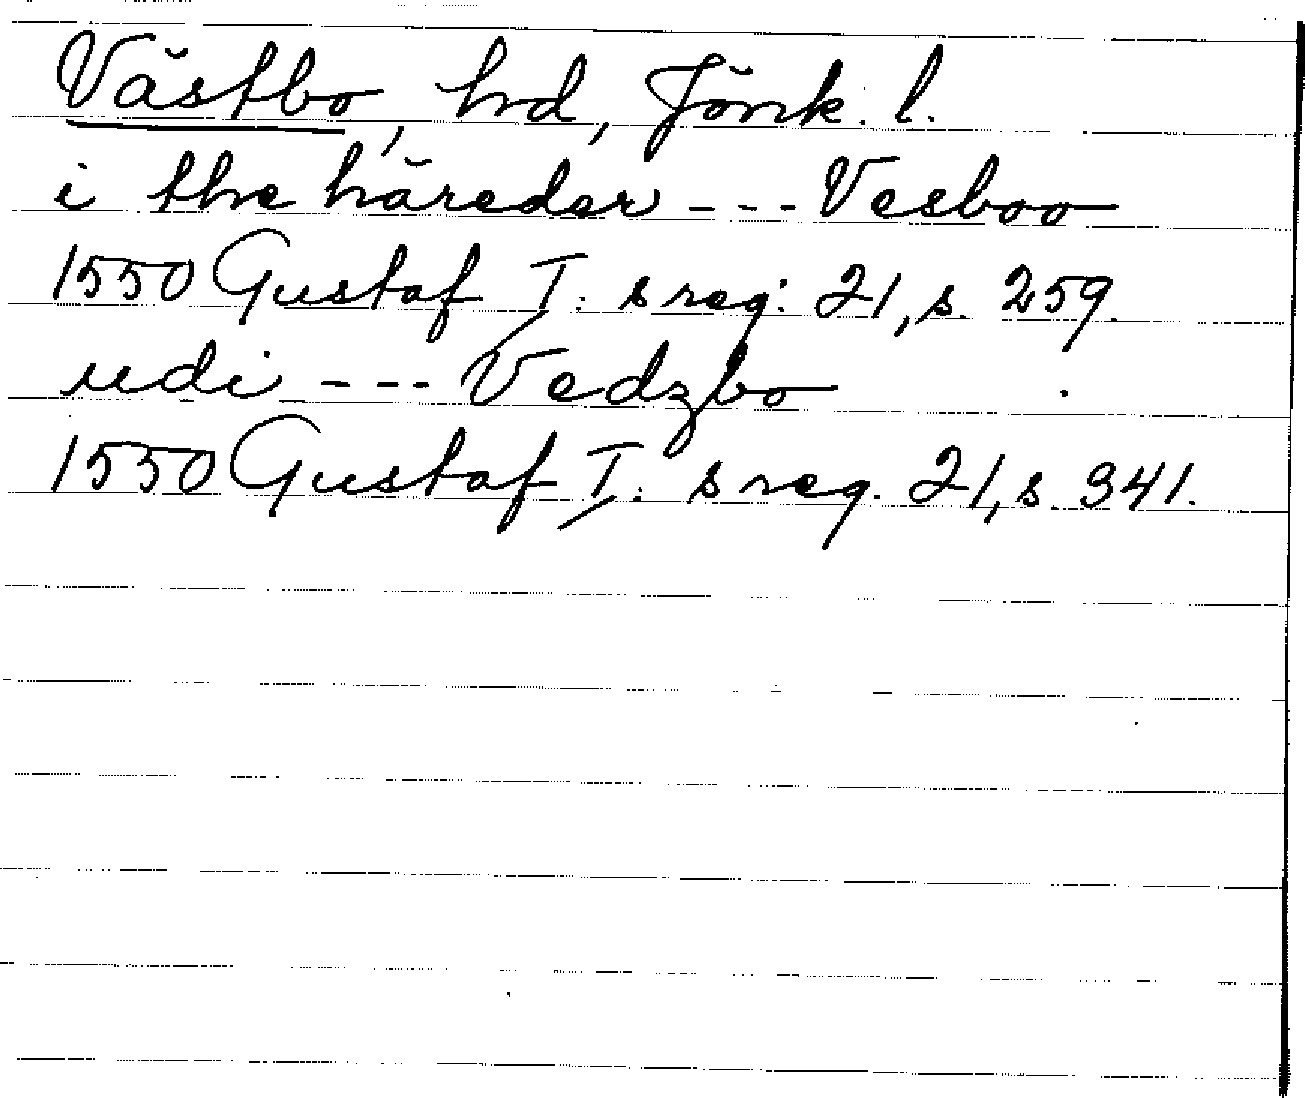 Västbo, hd, Jönk. l.
i the häreder --- Vesboo
1550 Gustaf I: s reg: 21, s. 259.
udi --- Vedzbo
1550 Gustaf I: s reg. 21, s. 341.